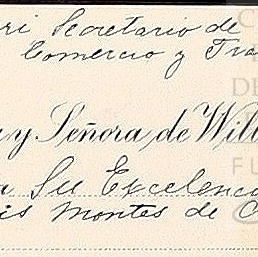 ri Secretario de
Comercio y Tra
y Señora de Wil
a Su Excelenc
is Montes de O